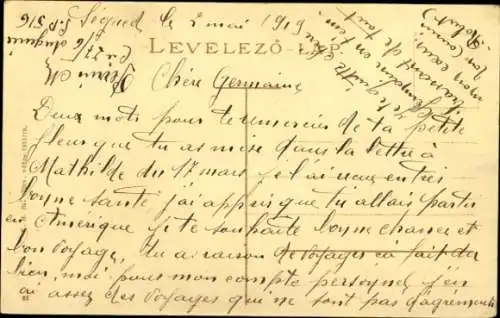 Szeged le 2 mai 1919
LEVELEZŐ-LAP
S.P. 516
Chère Germaine
Deux mots pour te remercier de ta petite
fleur que tu as mise dans la lettre à
Mathilde du 17 mars je l'ai reçu en très
bonne santé j'ai appris que tu allais partir
en Amérique je te souhaite bonne chance et
bon voyage, tu a raison de voyages ca fait du
bien, moi pour mon compte personnel j'en
ai assez des voyages qui ne sont pas d'agréments
je te quitte chère
Germaine en t'em
de tout
mon cœur
ton cousin